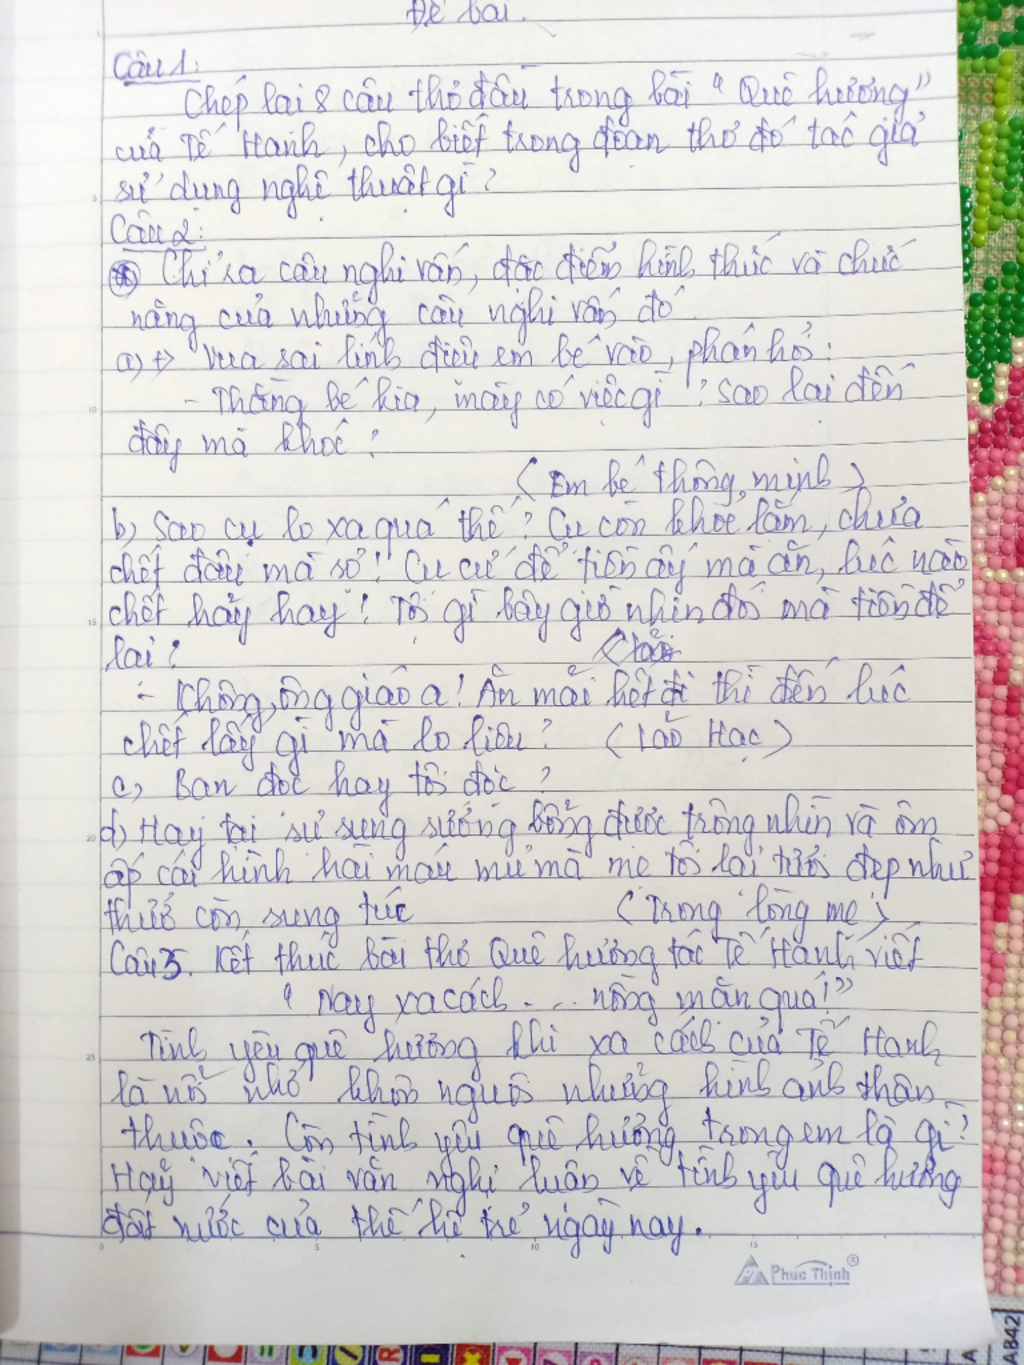 Đề bài.
Câu 1:
Chép lại 8 câu thơ đầu trong bài "Quê hương"
của Tế Hanh, cho biết trong đoạn thơ đó tác giả
sử dụng nghệ thuật gì?
Câu 2:
Chỉ ra câu nghi vấn, đặc điểm hình thức và chức
năng của những câu nghi vấn đó
a) Vua sai lính điệu em bé vào, phán hỏi:
- Thằng bé kia, mày có việc gì? Sao lại đến
đây mà khóc?
(Em bé thông minh)
b) Sao cụ lo xa quá thế? Cụ còn khỏe lắm, chưa
chết đâu mà sợ! Cụ cứ để tiền ấy mà ăn, lúc nào
chết hãy hay! Tội gì bây giờ nhịn đói mà tiền để
lại?
- Không, ông giáo ạ! Ăn mãi hết đi thì đến lúc
chết lấy gì mà lo liệu? (Lão Hạc)
c) Bạn đọc hay tôi đọc?
d) Hay tại sự sung sướng bỗng được trông nhìn và ôm
ấp cái hình hài máu mủ mà mẹ tôi lại tươi đẹp như
thuở còn sung túc (Trong lòng mẹ)
Câu 3. Kết thúc bài thơ Quê hương tác Tế Hanh viết
"Nay xa cách .... nồng mặn quá!"
Tình yêu quê hương khi xa cách của Tế Hanh
là nỗi nhớ khôn nguôi những hình ảnh thân
thuộc. Còn tình yêu quê hương trong em là gì?
Hãy viết bài văn nghị luận về tình yêu quê hương
đất nước của thế hệ trẻ ngày nay.
5
10
15
20
25
0
5
10
15
Phuc Thinh®
AB42
A